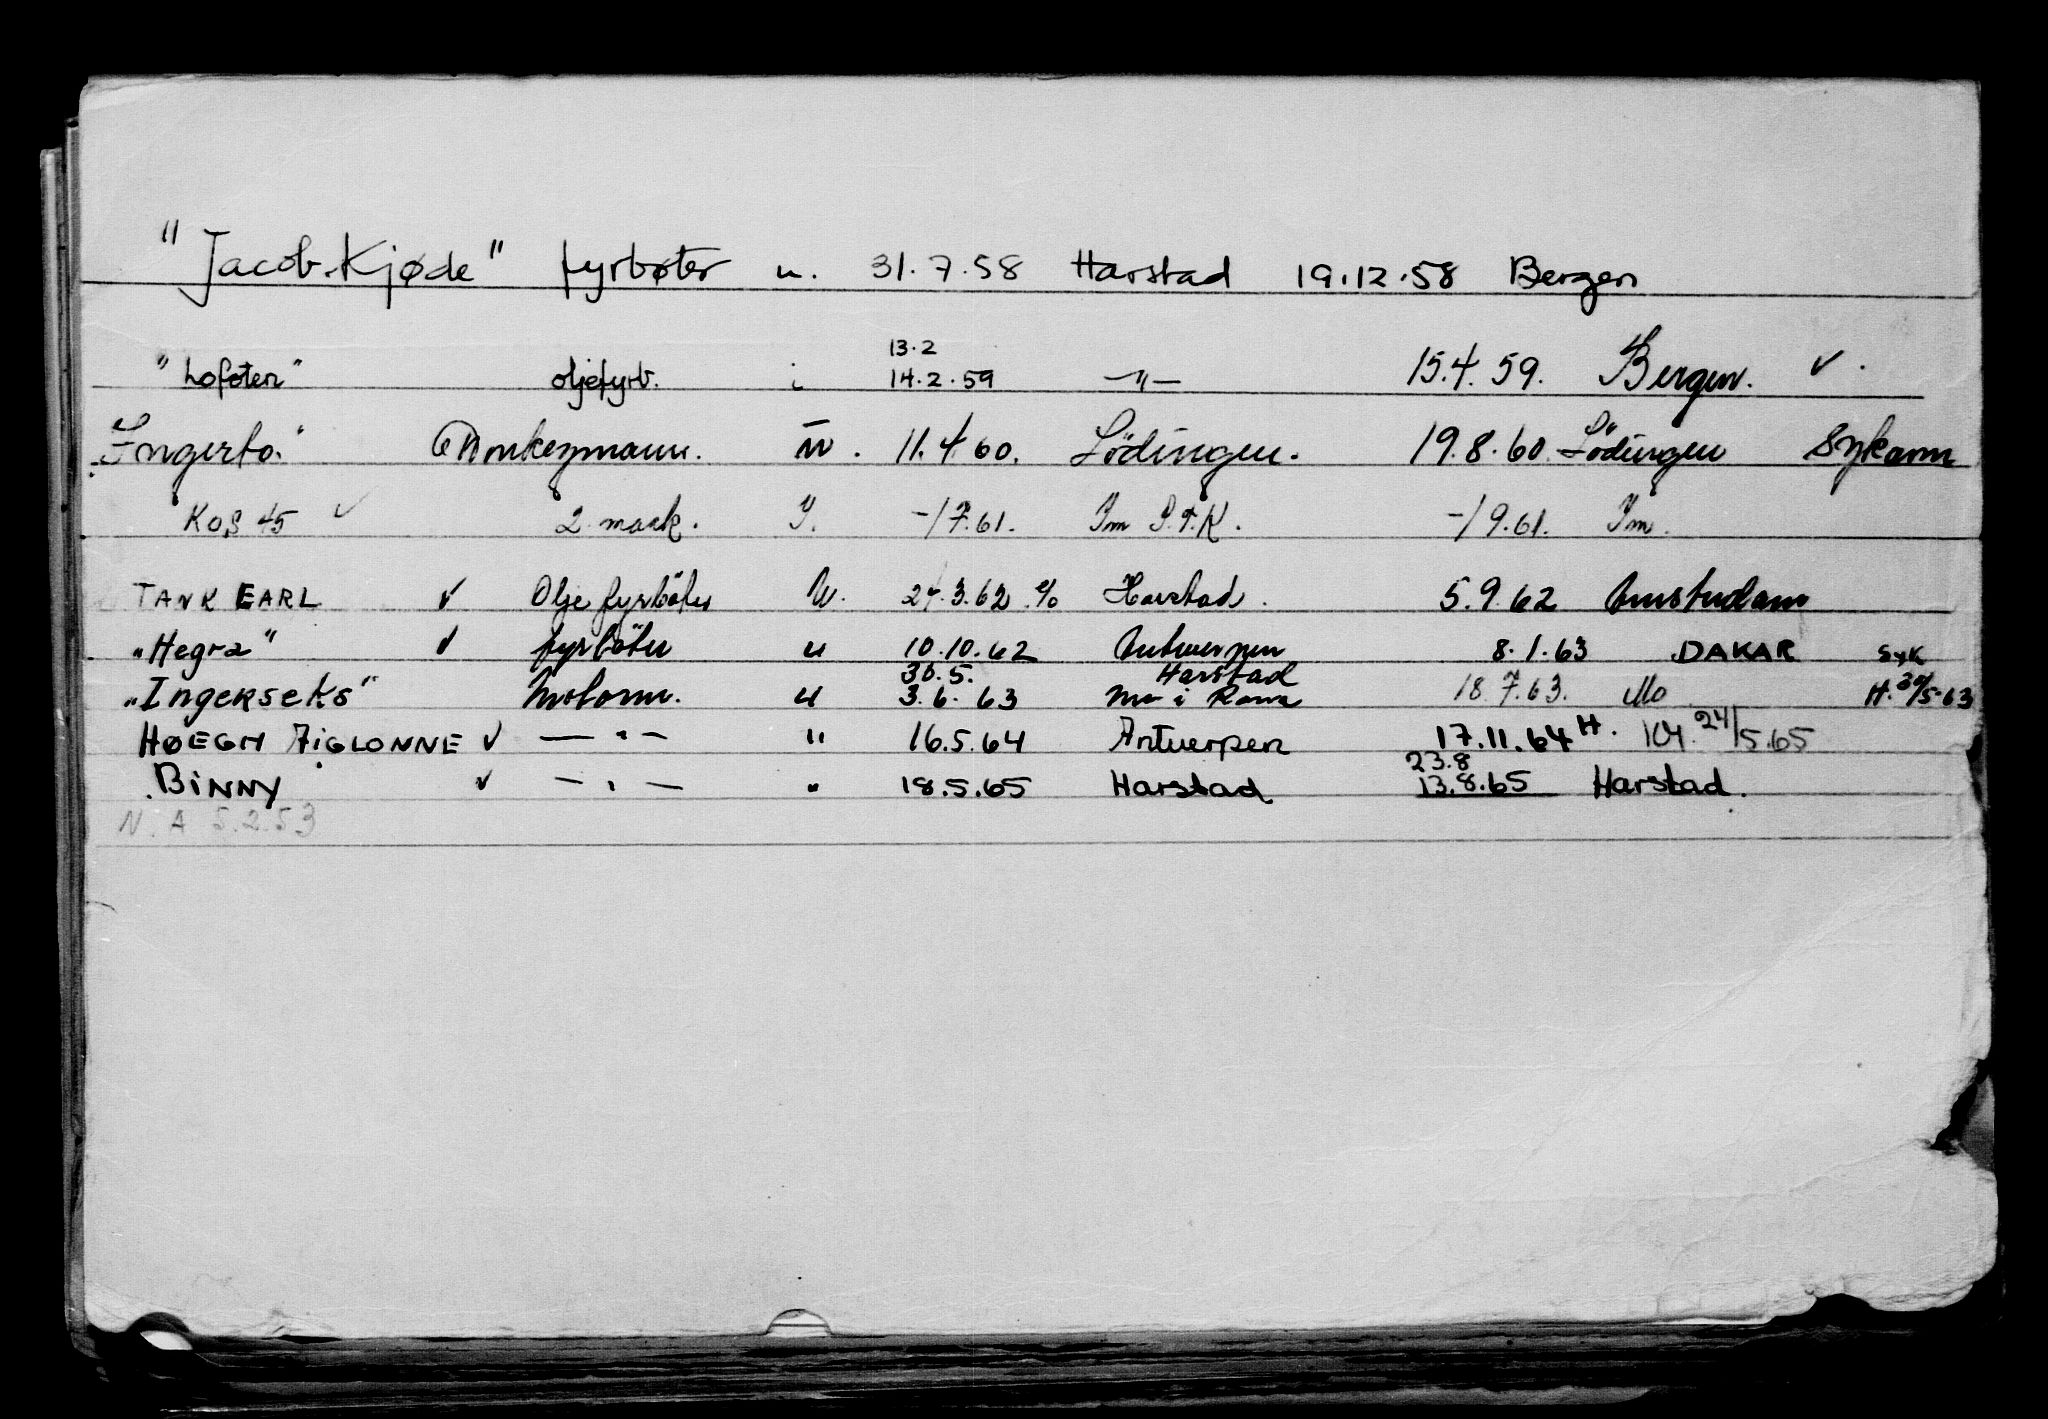 "Jacob Kjøde" fyrbøter u. 31.7.58 Harstad 19.12.58 Bergen
13.2
"Lofoten" oljefyrb. i 14.2.59 —"— 15.4.59. Bergen. ✓.
Ingerto." Donkeymann. u. 11.4.60. Lödingen. 19.8.60 Lödingen Sykdom
KOS 45 ✓ 2 mask. I. -/7.61. -/9.61.
TANK EARL ✓ Oljefyrböter u. 24.3.62 Harstad. 5.9.62 Amsterdam
"Hegra" ✓ fyrböter u 10.10.62 Antwerpen 8.1.63 DAKAR SYK
30.5. Harstad
"Ingerseks" Motorm. u 3.6.63 Mo i Rana 18.7.63. Mo H. 30/5-63
HØEGH AIGLONNE ✓ —"— " 16.5.64 Antwerpen 17.11.64 H. 104. 24/5.65
23.8
BINNY ✓ —"— " 18.5.65 Harstad 13.8.65 Harstad.
N.A 5.2.53